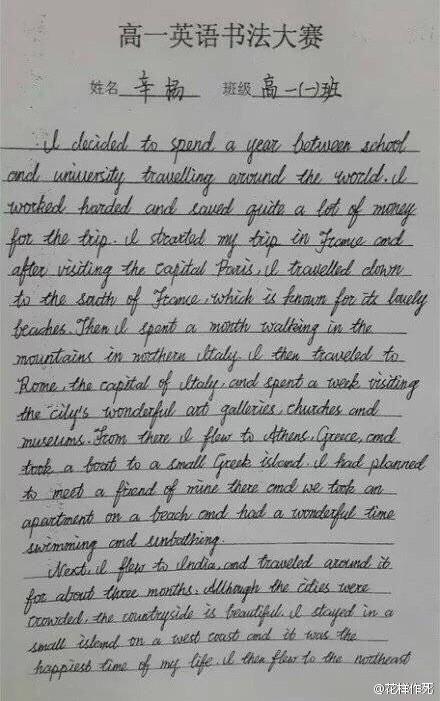 高一英语书法大赛
姓名 辛杨 班级 高一(一)班
I decided to spend a year between school
and university travelling around the world. I
worked harded and saved quite a lot of money
for the trip. I strarted my trip in France and
after visiting the capital Paris, I travelled down
to the south of France, which is known for its lovely
beaches. Then I spent a month walking in the
mountains in northern Italy. I then traveled to
Rome, the capital of Italy, and spent a week visiting
the city's wonderful art galleries, churches and
museums. From there I flew to Athens, Greece, and
took a boat to a small Greek island. I had planned
to meet a friend of mine there and we took an
apartment on a beach and had a wonderful time
swimming and sunbathing.
Next, I flew to India, and traveled around it
for about three months. Although the cities were
crowded, the countryside is beautiful. I stayed in a
small island on a west coast and it was the
happiest time of my life. I then flew to the northeast
@花样作死